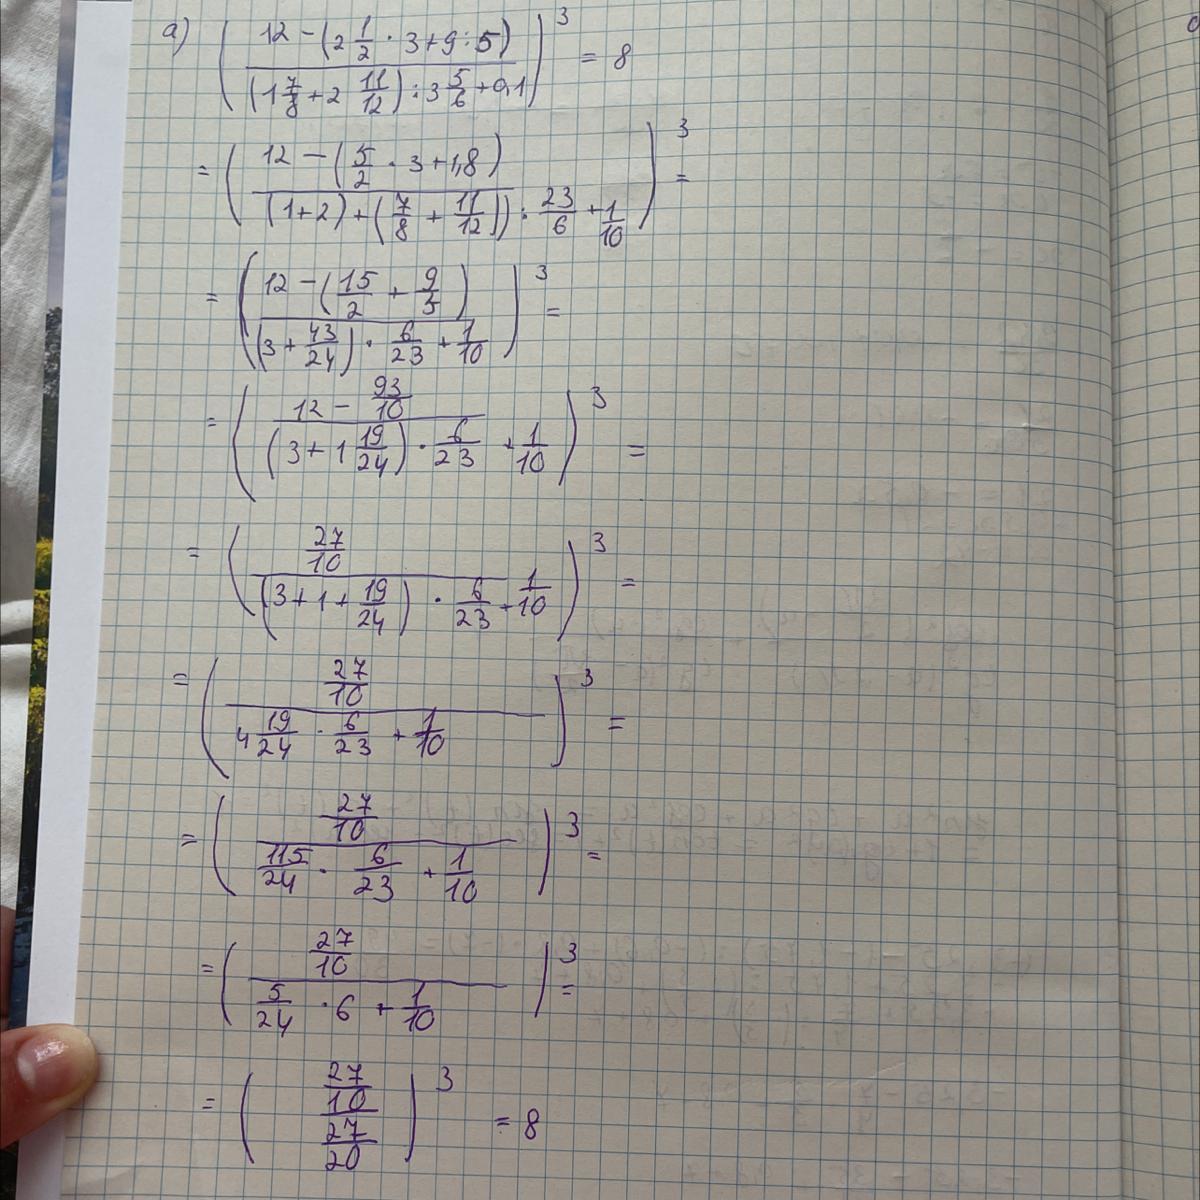 а) ((12 - (2 1/2 · 3 + 9 : 5)) / ((1 7/8 + 2 11/12) : 3 5/6 + 0,1))^3 = 8
= ((12 - (5/2 · 3 + 1,8)) / ((1+2) + (7/8 + 11/12)) : 23/6 + 1/10)^3 =
= ((12 - (15/2 + 9/5)) / ((3 + 43/24) · 6/23 + 1/10))^3 =
= ((12 - 93/10) / ((3 + 1 19/24) · 6/23 + 1/10))^3 =
= ((27/10) / ((3 + 1 + 19/24) · 6/23 + 1/10))^3 =
= ((27/10) / (4 19/24 · 6/23 + 1/10))^3 =
= ((27/10) / (115/24 · 6/23 + 1/10))^3 =
= ((27/10) / (5/24 · 6 + 1/10))^3 =
= ((27/10) / (27/20))^3 = 8